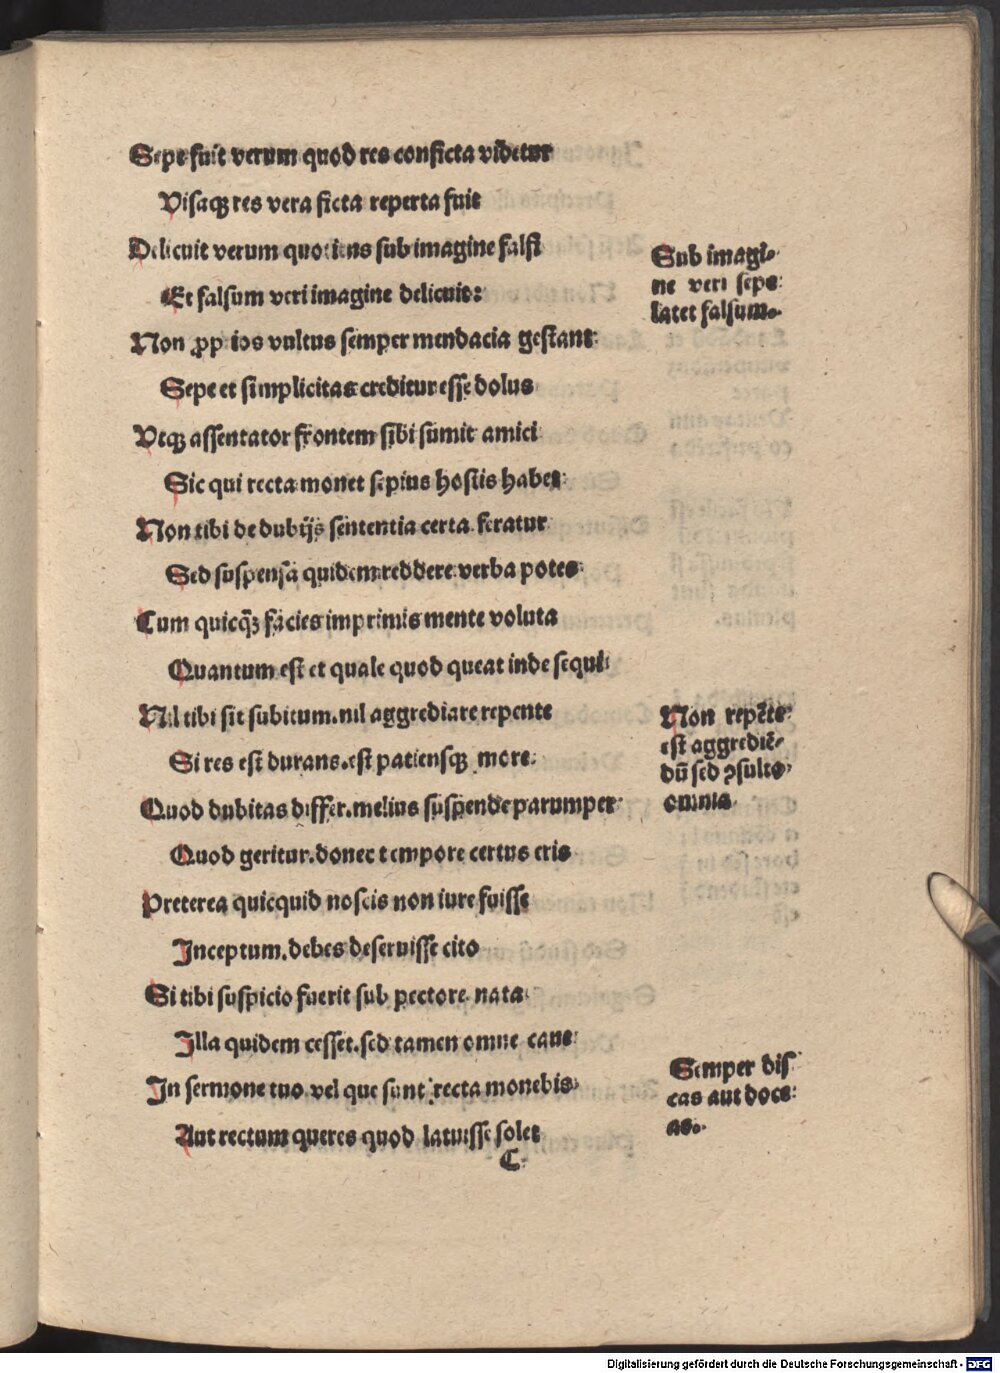 Sepe fuit verum quod res conficta videtur
Visaqꝫ res vera ficta reperta fuit
Delicuit verum quotiens sub imagine falsi
Et falsum veri imagine delicuit:
Non ꝓpͥios vultus semper mendacia gestant:
Sepe et simplicitas creditur esse dolus
Vtqꝫ assentator frontem sibi sumit amici
Sic qui recta monet sepius hostis habet:
Non tibi de dubijs sententia certa feratur
Sed suspensa quidem reddere verba potes
Cum quicqꝫ facies imprimis mente voluta
Quantum est et quale quod queat inde sequi:
Nil tibi sit subitum. nil aggrediare repente
Si res est durans. est patiensqꝫ more.
Quod dubitas differ. melius suspende parumper
Quod geritur. donec tempore certus eris
Preterea quicquid noscis non iure fuisse
Inceptum. debes deseruisse cito
Si tibi suspicio fuerit sub pectore nata
Illa quidem cesset. sed tamen omne caue:
In sermone tuo vel que sunt recta monebis
Aut rectum queres quod latuisse solet
C
Sub imagi-
ne veri sepe
latet falsum.
Non repēte
est aggrediē-
dū sed ꝯsulte
omnia.
Semper dis
cas aut doce-
as.
Digitalisierung gefördert durch die Deutsche Forschungsgemeinschaft - DFG